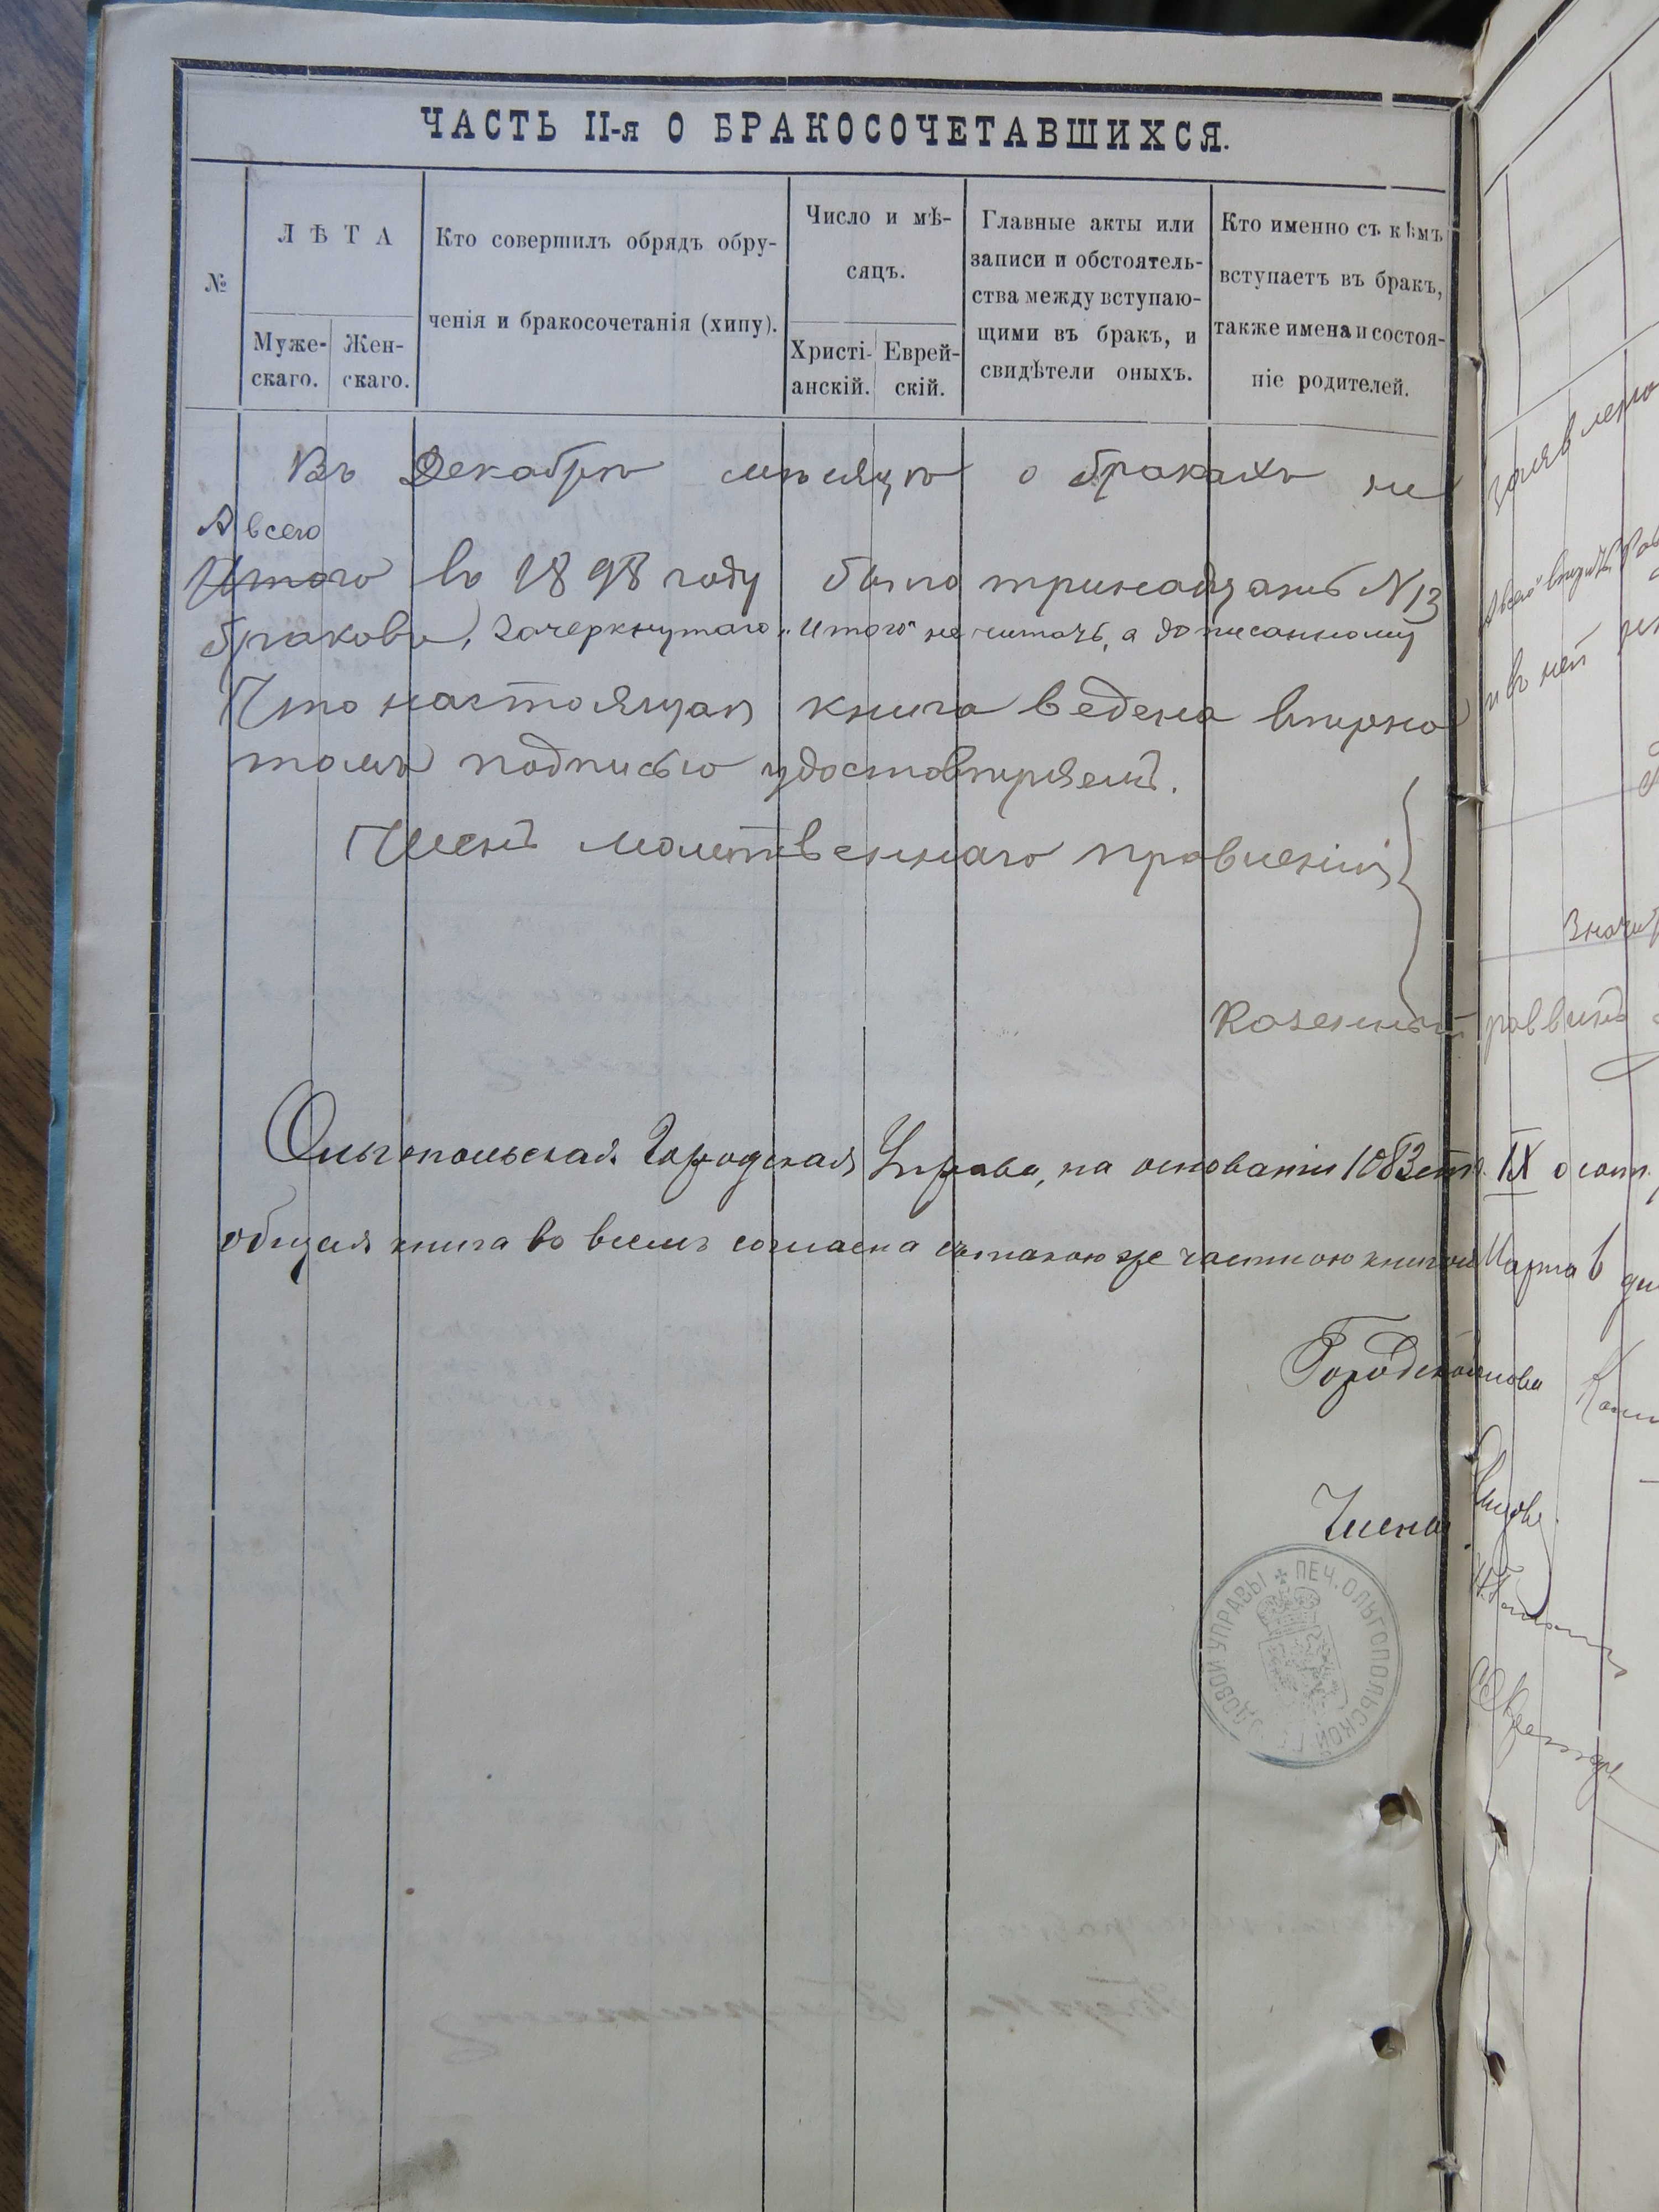 ЧАСТЬ II-я О БРАКОСОЧЕТАВШИХСЯ.
№
ЛѢТА
Муже-
скаго.
Жен-
скаго.
Кто совершилъ обрядъ обру-
ченія и бракосочетанія (хипу).
Число и мѣ-
сяцъ.
Христі-
анскій.
Еврей-
скій.
Главные акты или
записи и обстоятель-
ства между вступаю-
щими въ бракъ, и
свидѣтели оныхъ.
Кто именно съ кѣмъ
вступаетъ въ бракъ,
также имена и состоя-
ніе родителей.
Въ Декабрѣ мѣсяцѣ о бракахъ не
А всего
Итого во 1898 году было тринадцать N 13
браковъ, Зачеркнутаго „Итого“ не читать, а дописанному
Что настоящая книга ведена вѣрно
томъ подписью удостовѣряемъ.
Членъ молитвеннаго правленія
Казенный раввинъ
Ольгопольская Городская Управа, на основаніи 1083 ст. IX
общая книга во всемъ согласна съ такою же частною книгою Марта
Городской голова
Члены
ПЕЧ. ОЛЬГОПОЛЬСКОЙ УПРАВЫ